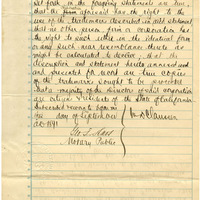 set forth in the foregoing statement are true,
that the firm aforesaid has the right to the
use of the trademark described in said statement
that no other person firm or corporation has
the right to such use in the identical form
or any such near resemblance thereto as
might be calculated to deceive; that the
description and statement thereto annexed
and presented for record are true copies
of the trademark sought to be protected
that a majority of the directors of said corporation
are citizens & residents of the State of California
Subscribed & sworn to before me
day of September
A.D. 1891
Notary Public